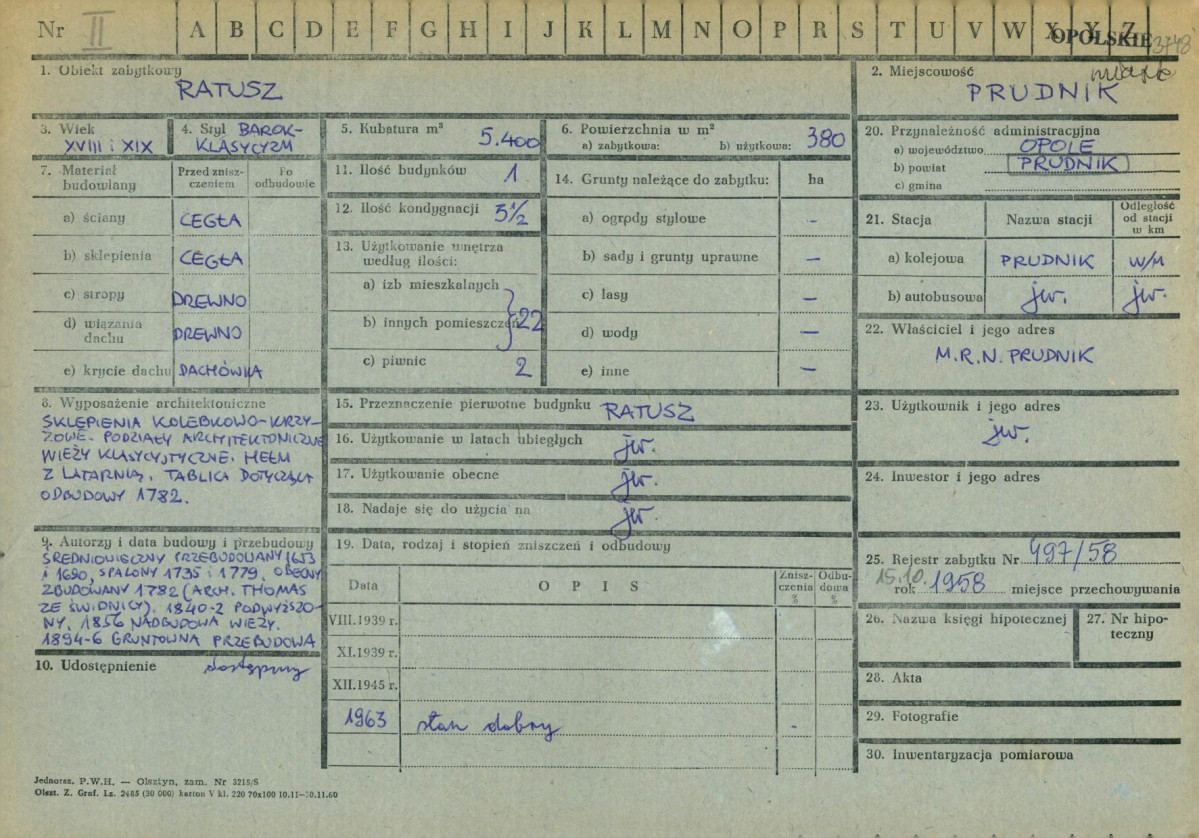 Nr II A B C D E F G H I J K L M N O P R S T U V W X Y Z OPOLSKIE 3748
miasto
1. Obiekt zabytkowy
RATUSZ
2. Miejscowość
PRUDNIK
3. Wiek
XVIII i XIX
4. Styl BAROK-
KLASYCYZM
5. Kubatura m³
5.400
6. Powierzchnia w m²
a) zabytkowa: b) użytkowa: 380
20. Przynależność administracyjna
a) województwo OPOLE
b) powiat PRUDNIK
c) gmina
7. Materiał
budowlany
Przed znisz-
czeniem
Po
odbudowie
a) ściany CEGŁA
b) sklepienia CEGŁA
c) stropy DREWNO
d) wiązania
dachu DREWNO
e) krycie dachu DACHÓWKA
11. Ilość budynków 1
12. Ilość kondygnacji 3 1/2
13. Użytkowanie wnętrza
według ilości:
a) izb mieszkalnych
b) innych pomieszczeń 22
c) piwnic 2
14. Grunty należące do zabytku: ha
a) ogrody stylowe –
b) sady i grunty uprawne –
c) lasy –
d) wody –
e) inne –
21. Stacja Nazwa stacji
Odległość
od stacji
w km
a) kolejowa PRUDNIK W/M
b) autobusowa jw. jw.
22. Właściciel i jego adres
M.R.N. PRUDNIK
8. Wyposażenie architektoniczne
SKLEPIENIA KOLEBKOWO-KRZY-
ŻOWE. PODZIAŁY ARCHITEKTONICZNE
WIEŻY KLASYCYSTYCZNE. HEŁM
Z LATARNIĄ. TABLICA DOTYCZĄCA
ODBUDOWY 1782.
15. Przeznaczenie pierwotne budynku RATUSZ
16. Użytkowanie w latach ubiegłych jw.
17. Użytkowanie obecne jw.
18. Nadaje się do użycia na jw.
23. Użytkownik i jego adres
jw.
24. Inwestor i jego adres
9. Autorzy i data budowy i przebudowy
ŚREDNIOWIECZNY PRZEBUDOWANY 1653
i 1690, SPALONY 1735 i 1779. OBECNY
ZBUDOWANY 1782 (ARCH. THOMAS
ZE ŚWIDNICY). 1840-2 PODWYŻSZO-
NY. 1856 NADBUDOWA WIEŻY.
1894-6 GRUNTOWNA PRZEBUDOWA
10. Udostępnienie dostępny
19. Data, rodzaj i stopień zniszczeń i odbudowy
Data OPIS
Znisz-
czenia
%
Odbu-
dowa
%
VIII.1939 r.
XI.1939 r.
XII.1945 r.
1963 stan dobry -
25. Rejestr zabytku Nr 497/58
15.10. rok 1958 miejsce przechowywania
26. Nazwa księgi hipotecznej
27. Nr hipo-
teczny
28. Akta
29. Fotografie
30. Inwentaryzacja pomiarowa
Jednoraz. P.W.H. — Olsztyn, zam. Nr 3215/S
Olszt. Z. Graf. Lz. 2485 (30 000) karton V kl. 220 70x100 10.11—30.11.60